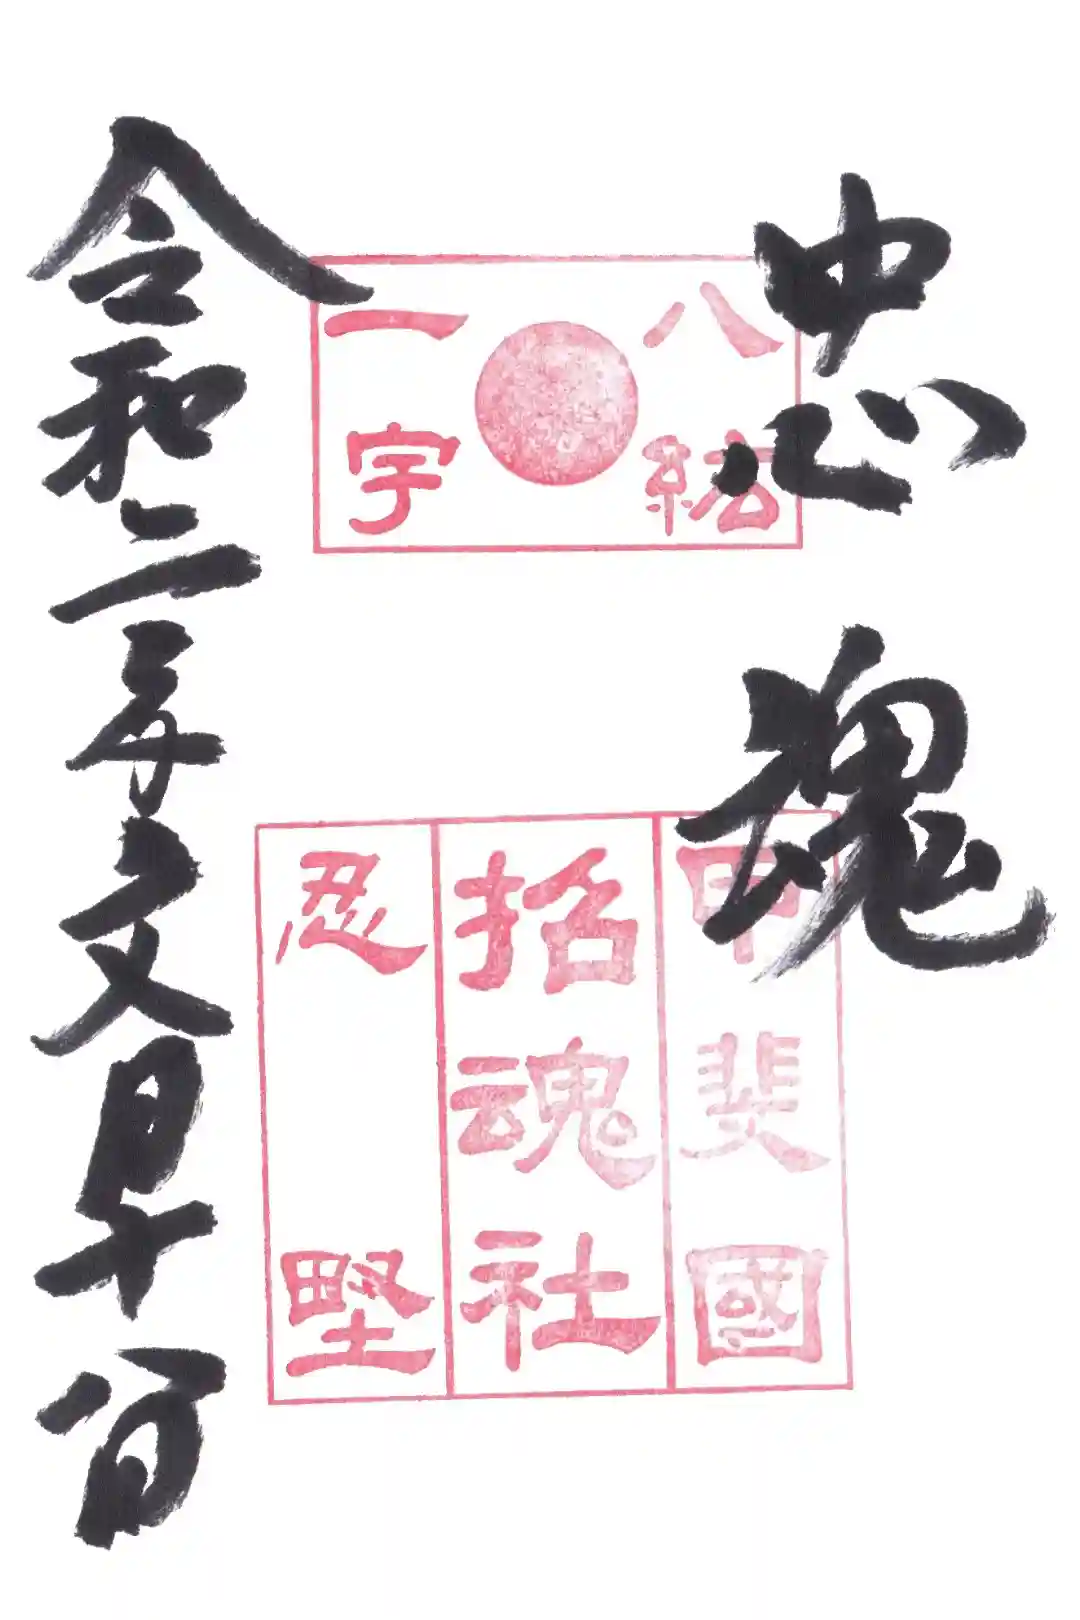 忠魂
八紘
一宇
甲斐國
招魂社
忍堅
令和二年文月十八日